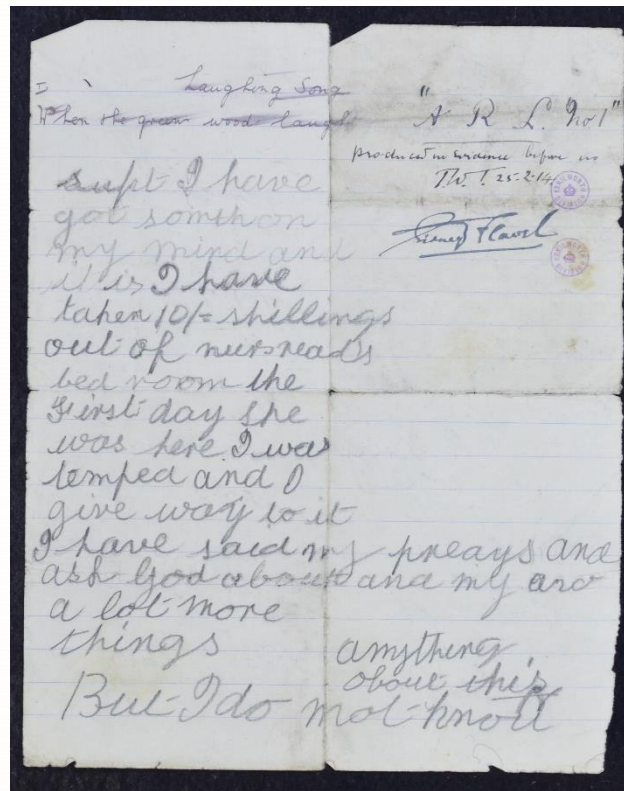 I Laughing Song
When the green wood laugh
"A R L. No 1"
produced in evidence before us
T.W.T. 25-2-14
Sidney Flavel
supt I have
got somthon
my mind and
it is I have
taken 10/= shillings
out of nurs reads
bed room the
First day she
was here I was
temped and I
give way to it
I have said my preays and
ask God about and my
a lot more
things
anything
about this
But I do not know